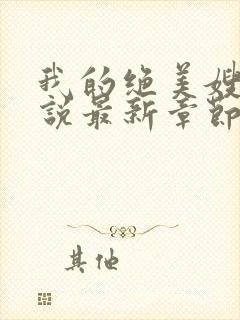 我的绝美嫂
說最新章節
其他